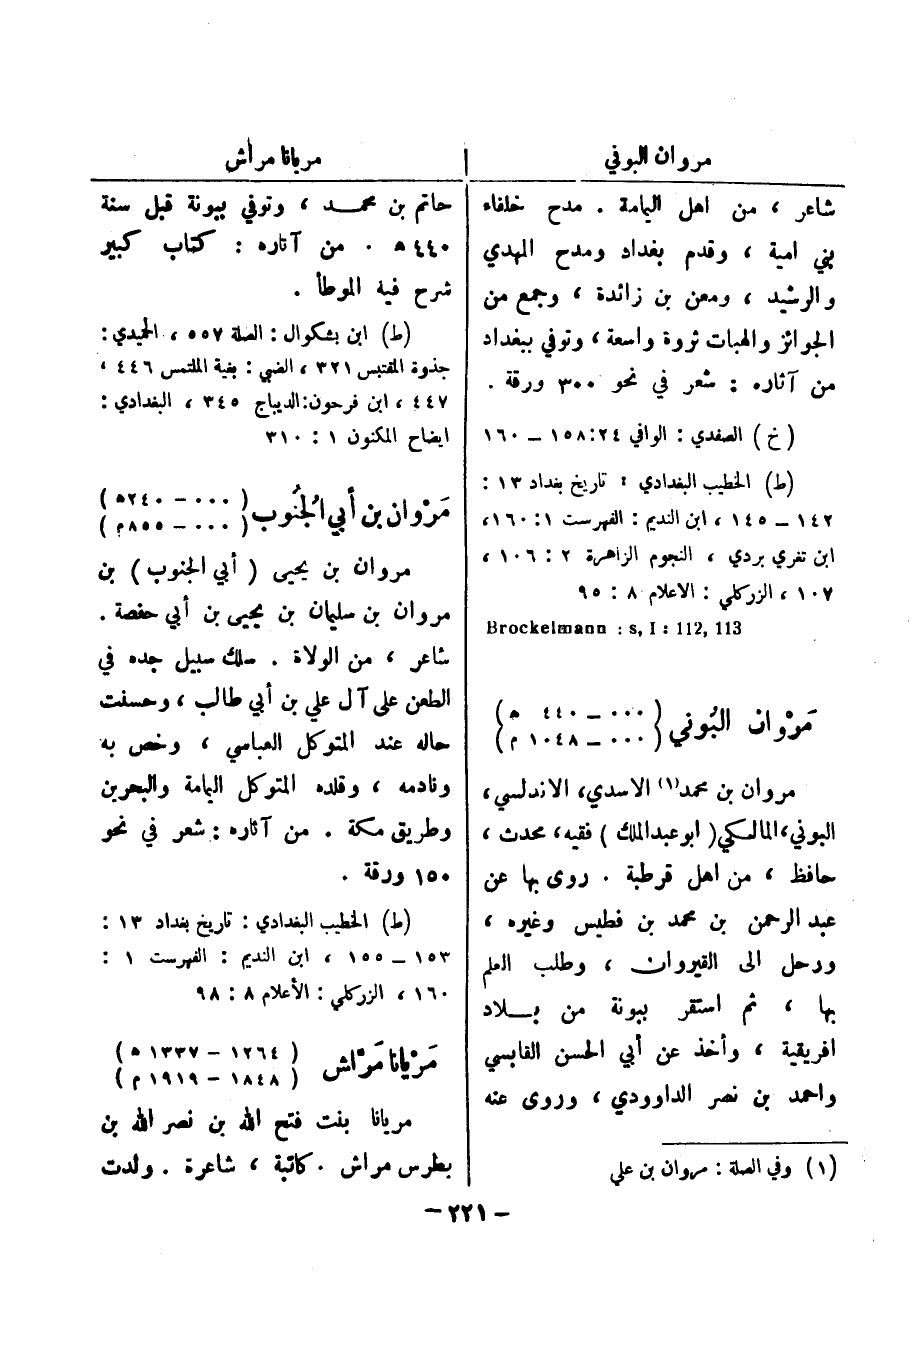 مروان البوني
مريانا مراش
شاعر ، من اهل اليامة . مدح خلفاء
بني امية ، وقدم بغداد ومدح المهدي
والرشيد ، ومعن بن زائدة ، وجمع من
الجوائز والهبات ثروة واسعة ، وتوفي ببغداد
من آثاره : شعر في نحو ٣٠٠ ورقة .
(خ) الصفدي : الوافي ٢٤:١٥٨ – ١٦٠
(ط) الخطيب البغدادي : تاريخ بغداد ١٣ :
١٤٢ – ١٤٥ ، ابن النديم : الفهرست ١ : ١٦٠،
ابن تغري بردي ، النجوم الزاهرة ٢ : ١٠٦ ،
١٠٧ ، الزركلي : الاعلام ٨ : ٩٥
Brockelmann : s, I : 112, 113
مَرْوان البُوني (٠٠٠ – ٤٤٠ ه)
(٠٠٠ – ١٠٤٨ م)
مروان بن محمد(١) الاسدي، الاندلسي،
البوني،المالكي( ابو عبدالملك ) فقيه، محدث ،
حافظ ، من اهل قرطبة . روى بها عن
عبد الرحمن بن محمد بن فطيس وغيره ،
ورحل الى القيروان ، وطلب العلم
بها ، ثم استقر ببونة من بلاد
افريقية ، وأخذ عن أبي الحسن القابسي
واحمد بن نصر الداوودي ، وروى عنه
(١) وفي الصلة : مروان بن علي
حاتم بن محمد ، وتوفي ببونة قبل سنة
٤٤٠ ه . من آثاره : كتاب كبير
شرح فيه الموطأ .
(ط) ابن بشكوال : الصلة ٥٥٧ ، الحميدي :
جذوة المقتبس ٣٢١ ، الضبي : بغية الملتمس ٤٤٦ ،
٤٤٧ ، ابن فرحون:الديباج ٣٤٥ ، البغدادي :
ايضاح المكنون ١ : ٣١٠
مَرْوان بن أبي الجُنُوب (٠٠٠ – ٢٤٠ه)
(٠٠٠ – ٨٥٥م)
مروان بن يحيى ( أبي الجنوب ) بن
مروان بن سليمان بن يحيى بن أبي حفصة .
شاعر ، من الولاة . سلك سبيل جده في
الطعن على آل علي بن أبي طالب ، وحسنت
حاله عند المتوكل العباسي ، وخص به
ونادمه ، وقلده المتوكل اليامة والبحرين
وطريق مكة . من آثاره : شعر في نحو
١٥٠ ورقة .
(ط) الخطيب البغدادي : تاريخ بغداد ١٣ :
١٥٣ – ١٥٥ ، ابن النديم : الفهرست ١ :
١٦٠ ، الزركلي : الأعلام ٨ : ٩٨
مَرْيانا مَرّاش (١٢٦٤ – ١٣٣٧ ه)
(١٨٤٨ – ١٩١٩ م)
مريانا بنت فتح الله بن نصر الله بن
بطرس مراش . كاتبة ، شاعرة . ولدت
– ٢٢١ –